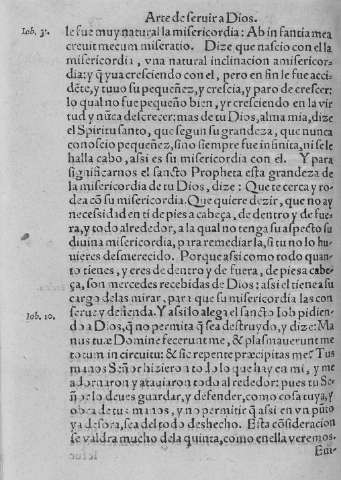 Arte de seruir a Dios.
Iob. 31. le fue muy natural la misericordia: Ab infantia mea
creuit mecum miseratio. Dize que nascio con el la
misericordia, vna natural inclinacion a misericor-
dia: y q̃ yua cresciendo con el, pero en fin le fue acci-
dẽte, y tuuo su pequeñez, y crescia, y paro de crescer:
lo qual no fue pequeño bien, yr cresciendo en la vir
tud y nũca descrecer: mas de tu Dios, alma mia, dize
el Spiritu santo, que segun su grandeza, que nunca
conoscio pequeñez, sino siempre fue infinita, ni se le
halla cabo, assi es su misericordia con el. Y para
significarnos el sancto Propheta esta grandeza de
la misericordia de tu Dios, dize: Que te cerca y ro-
dea cõ su misericordia. Que quiere dezir, que no ay
necessidad en ti de pies a cabeça, de dentro y de fue-
ra, y todo alrededor, a la qual no tenga su aspecto su
diuina misericordia, para remediar la, si tu no lo hu-
uieres desmerecido. Porque assi como todo quan-
to tienes, y eres de dentro y de fuera, de pies a cabe-
ça, son mercedes recebidas de Dios: assi el tiene a su
cargo de las mirar, para que su misericordia las con
Iob. 10. serue y defienda. Y assi lo alega el sancto Iob pidien-
do a Dios, q̃ no permita q̃ sea destruydo, y dize: Ma
nus tuæ Domine fecerunt me, & plasmauerunt me
totum in circuitu: & sic repente præcipitas me? Tus
manos Señor hizieron todo lo que hay en mi, y me
adornaron y atauiaron todo al rededor: pues tu Se-
ñor lo deues guardar, y defender, como cosa tuya, y
obra de tus manos, y no permitir q̃ assi en vn pũto
y a desora, sea del todo deshecho. Esta cõsideracion
se valdra mucho de la quinta, como en ella veremos.